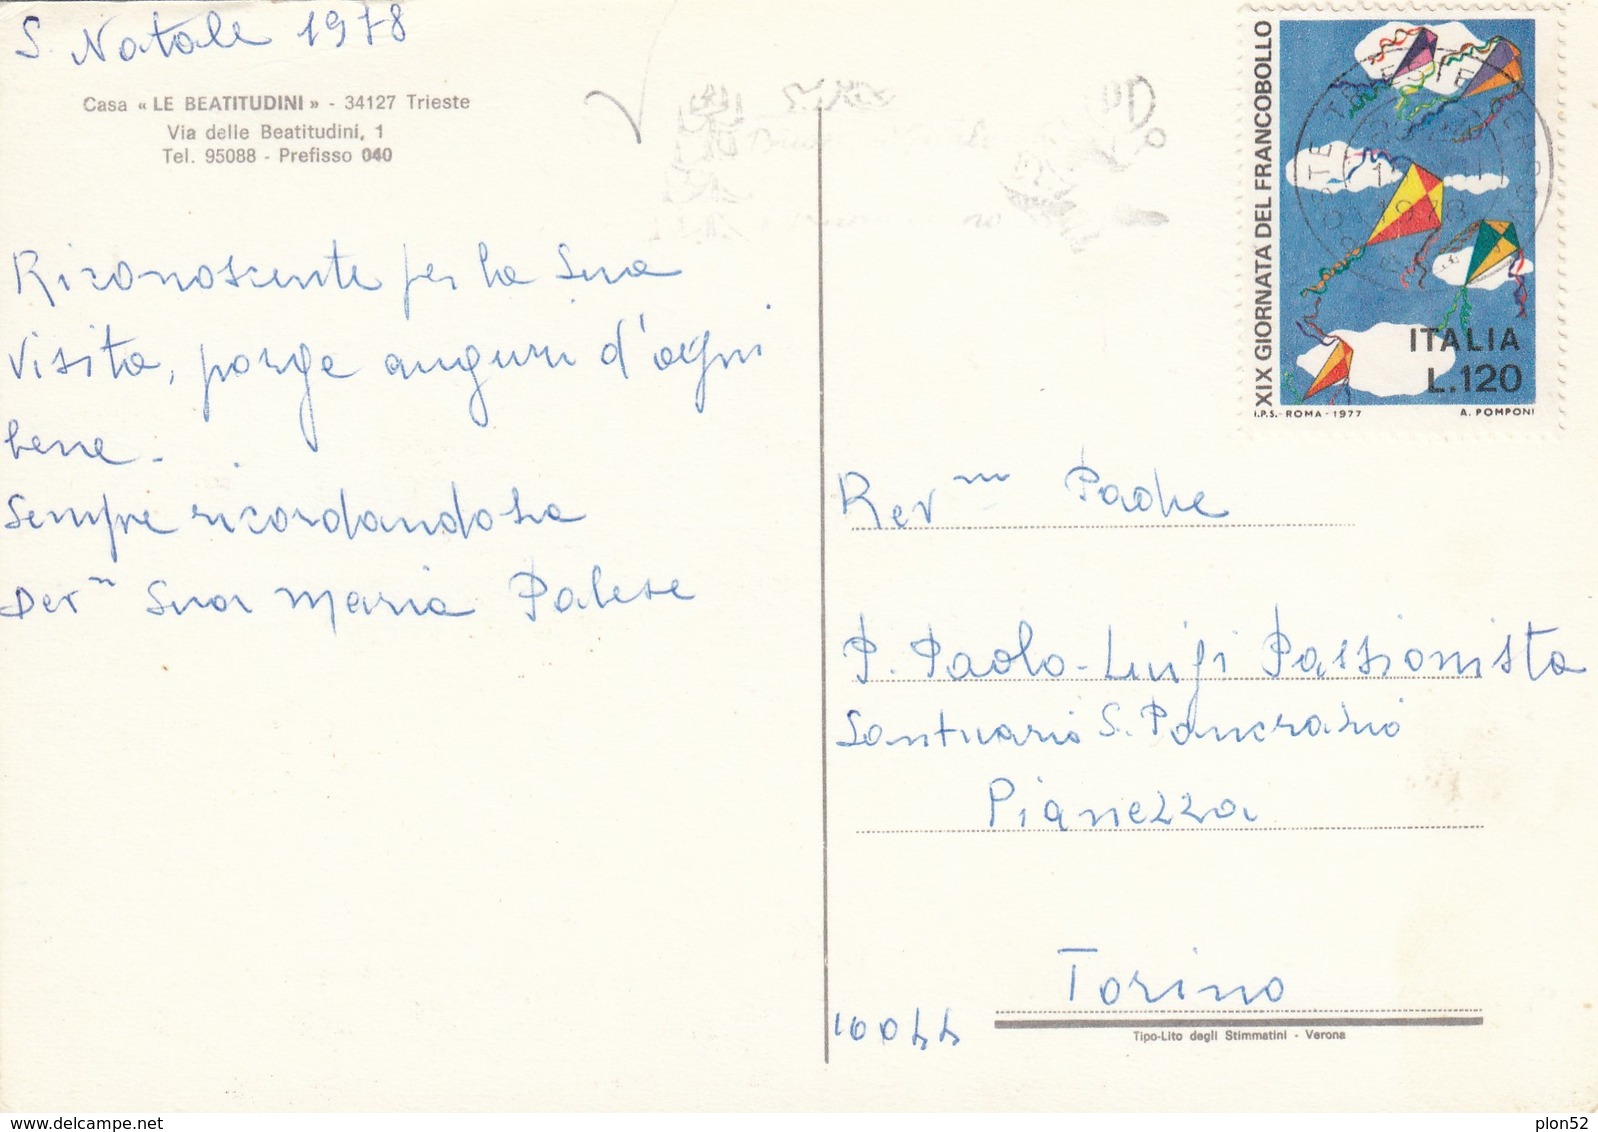 S. Natale 1978
Casa « LE BEATITUDINI » - 34127 Trieste
Via delle Beatitudini, 1
Tel. 95088 - Prefisso 040
Riconoscente per la Sua
visita, porge auguri d'ogni
bene.
Sempre ricordandola
Dev.ma Suor Maria Palese
XIX GIORNATA DEL FRANCOBOLLO
ITALIA
L.120
I.P.S.- ROMA - 1977 A. POMPONI
Rev.m Padre
P. Paolo-Luigi Passionista
Santuario S. Pancrazio
Pianezza
Torino
10044
Tipo-Lito degli Stimmatini - Verona
plon52